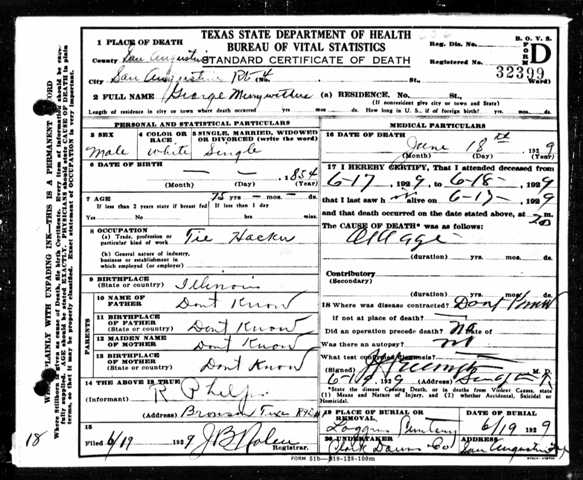 TEXAS STATE DEPARTMENT OF HEALTH
BUREAU OF VITAL STATISTICS
STANDARD CERTIFICATE OF DEATH
B. O. V. S.
FORM D
1 PLACE OF DEATH
County San Augustine
City San Augustine Rt 4 (No. St.; Ward)
Reg. Dis. No.
Registered No. 32399
2 FULL NAME George Merryweather (a) RESIDENCE. No. St.
(If nonresident give city or town and State)
Length of residence in city or town where death occurred yrs. mos. ds. How long in U. S., if of foreign birth? yrs. mos. ds.
PERSONAL AND STATISTICAL PARTICULARS
3 SEX
Male
4 COLOR OR RACE
White
5 SINGLE, MARRIED, WIDOWED OR DIVORCED (write the word)
Single
6 DATE OF BIRTH
— — 1854
(Month) (Day) (Year)
7 AGE
75 yrs — mos — ds.
If less than 2 years state if breast fed
Yes No
If less than 1 day
hrs. min.
8 OCCUPATION
(a) Trade, profession or particular kind of work
Tie Hacker
(b) General nature of industry, business or establishment in which employed (or employer)
9 BIRTHPLACE
(State or country) Illinois
PARENTS
10 NAME OF FATHER Dont Know
11 BIRTHPLACE OF FATHER
(State or country) Dont Know
12 MAIDEN NAME OF MOTHER Dont Know
13 BIRTHPLACE OF MOTHER
(State or country) Dont Know
14 THE ABOVE IS TRUE
(Informant) R Phelps
(Address) Bronson Texas
15
Filed 6/19 1929 J B Nolen
Registrar
MEDICAL PARTICULARS
16 DATE OF DEATH
June 18th 1929
(Month) (Day) (Year)
17 I HEREBY CERTIFY, That I attended deceased from
6-17 1929 to 6-18- 1929
that I last saw h alive on 6-17- 1929
and that death occurred on the date stated above, at m.
The CAUSE OF DEATH* was as follows:
Old Age
(duration) yrs. mos. ds.
Contributory
(Secondary)
(duration) yrs. mos. ds.
18 Where was disease contracted? Dont Know
if not at place of death?
Did an operation precede death? No Date of
Was there an autopsy? no
What test confirmed diagnosis?
(Signed) M. D.
1929 (Address)
*State the Disease Causing Death, or in deaths from Violent Causes, state (1) Means and Nature of Injury, and (2) whether Accidental, Suicidal or Homicidal.
19 PLACE OF BURIAL OR REMOVAL
Loggins Cemetery
DATE OF BURIAL
6/19 1929
20 UNDERTAKER
Clark Downs Co
ADDRESS
San Augustine Tex
18